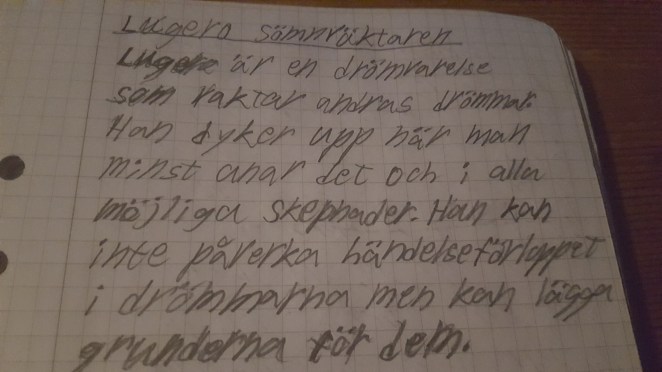 Lugero sömnväktaren
Lugero är en drömvarelse
som vaktar andras drömmar.
Han dyker upp när man
minst anar det och i alla
möjliga skepnader. Han kan
inte påverka händelseförloppet
i drömmarna men kan lägga
grunderna för dem.